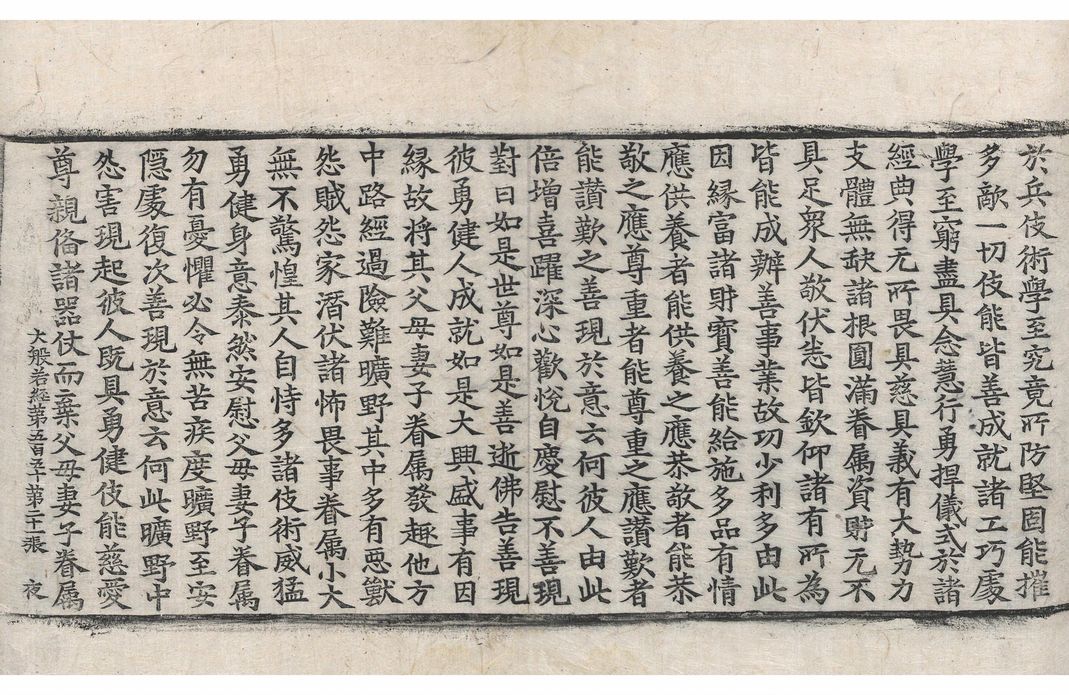 於兵伎術學至究竟所防堅固能摧
多敵一切伎能皆善成就諸工巧處
學至窮盡具念慧行勇捍儀式於諸
經典得无所畏具慈具義有大勢力
支體無缺諸根圓滿眷属資財无不
具足衆人敬伏悉皆欽仰諸有所為
皆能成辦善事業故功少利多由此
因緣富諸財寶善能給施多品有情
應供養者能供養之應恭敬者能恭
敬之應尊重者能尊重之應讃歎者
能讃歎之善現於意云何彼人由此
倍增喜躍深心歡悅自慶慰不善現
對曰如是世尊如是善逝佛告善現
彼勇健人成就如是大興盛事有因
緣故將其父母妻子眷属發趣他方
中路經過險難曠野其中多有惡獸
怨賊怨家潛伏諸怖畏事眷属小大
無不驚惶其人自恃多諸伎術威猛
勇健身意泰然安慰父母妻子眷属
勿有憂懼必令無苦疾度曠野至安
隱處復次善現於意云何此曠野中
怨害現起彼人既具勇健伎能慈愛
尊親俻諸器仗而棄父母妻子眷属
大般若經第五百五十 第二十張 夜